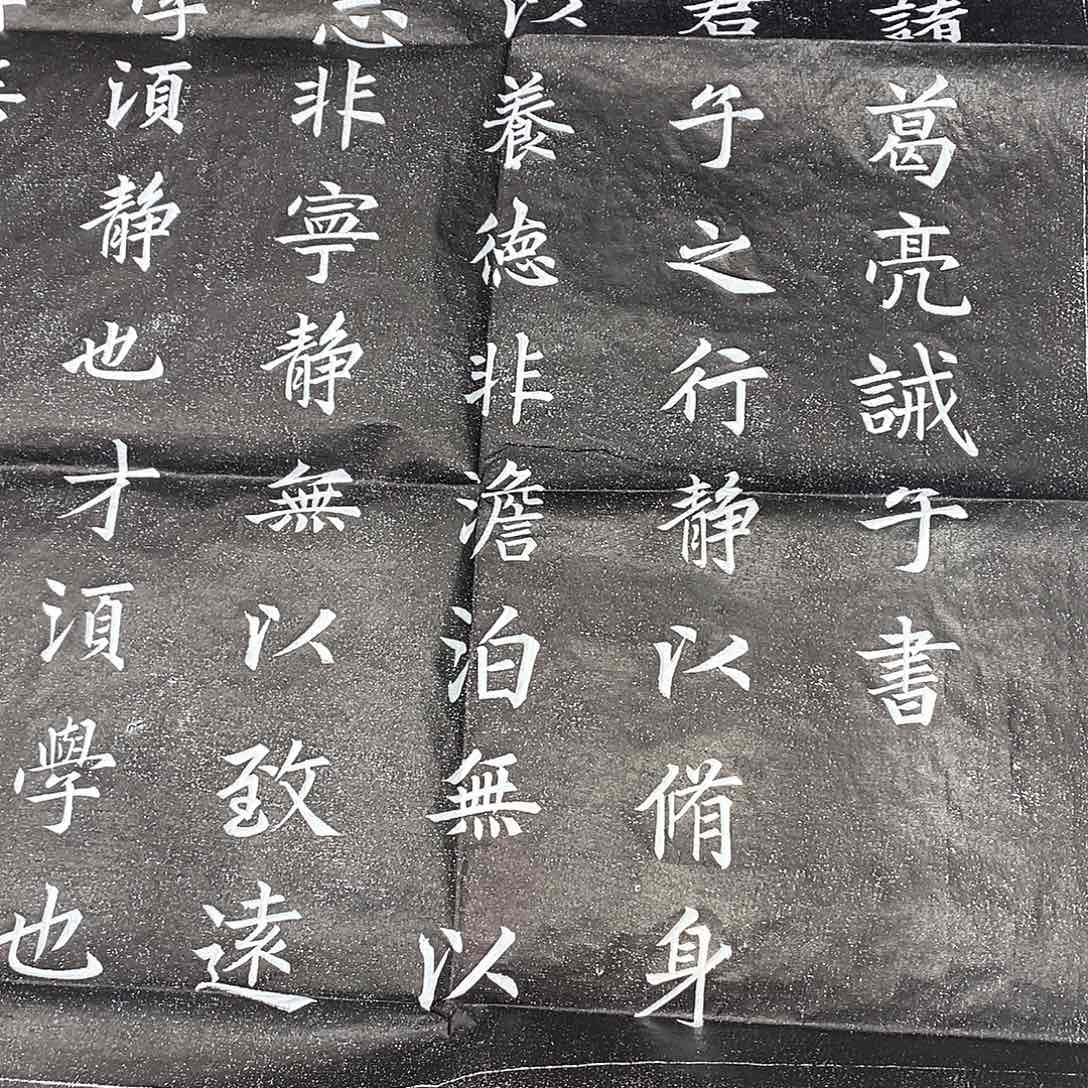 諸葛亮誡子書
君子之行静以脩身
以養徳非澹泊無以
志非寧静無以致遠
學湏静也才湏學也